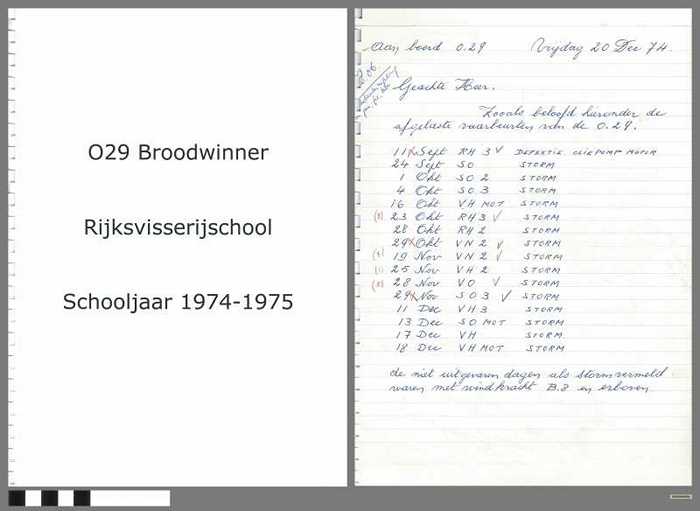 O29 Broodwinner
Rijksvisserijschool
Schooljaar 1974-1975
Aan boord 0.29 Vrijdag 20 Dec 74.
Geachte Heer.
Zooals beloofd hieronder de
afgelaste vaarbeurten van de 0.29.
11 x Sept RH 3 V DEFEKTIE OLIEPOMP MOTOR
24 Sept SO STORM
1 Okt SO 2 STORM
4 Okt SO 3 STORM
16 Okt VH MOT STORM
23 Okt RH 3 V STORM
28 Okt RH 2 STORM
29 x Okt VN 2 V STORM
19 Nov VN 2 V STORM
25 Nov VH 2 STORM
28 Nov VO V STORM
29 x Nov SO 3 V STORM
11 Dec VH 3 STORM
13 Dec SO MOT STORM
17 Dec VH STORM
18 Dec VH MOT STORM
de niet uitgevaren dagen als storm vermeld
waren met windkracht B.8 en erboven